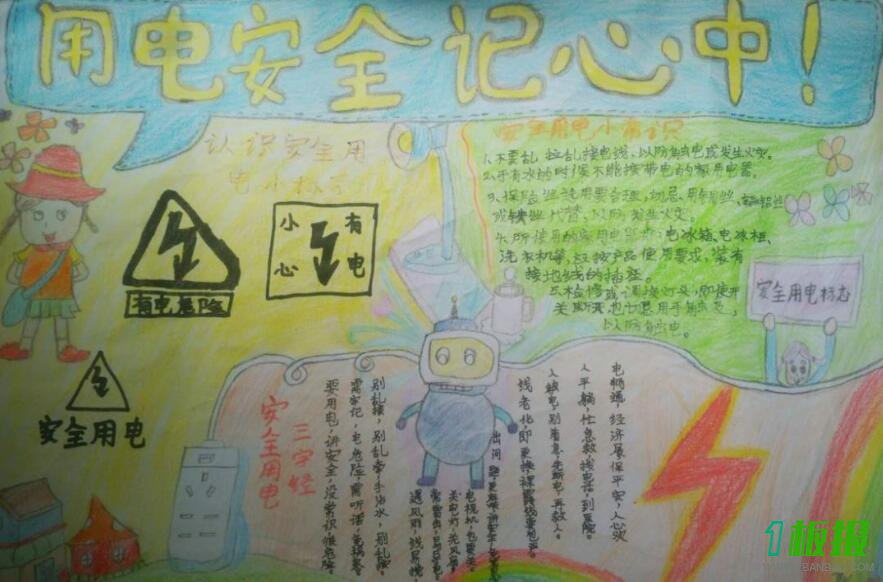 用电安全记心中！
认识安全用
电小标示
小心
有电
有电危险
安全用电
安全用电小常识
1.不要乱拉乱接电线，以防触电或发生火灾。
2.手有水的时候不能接带电的家用电器。
3.保险丝选用要合理，切忌用铜丝、铝丝
或铁丝代替，以防发生火灾。
4.所使用的家用电器如：电冰箱、电冰柜、
洗衣机等，应按产品使用要求，装有
接地线的插座。
5.检修或调换灯头，即使开
关断开，也切忌用手触及，
以防触电。
安全用电标志
安全用电
三字经
要用电，讲安全，没常识，很危险。
需牢记，电危险，需听话，免祸患。
别乱接，别乱牵，手沾水，别乱碰。
遇风雨
出问题
线老化，即更换，裸露线，要包全。
人触电，别着急，先断电，再救人。
人平躺，快急救，拨电话，到医院。
电畅通，经济展，保平安，人心欢
1板报